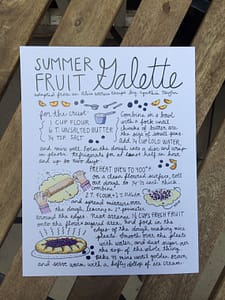 SUMMER
FRUIT Galette
adapted from an Alice Waters recipe by
for the crust:
1 CUP FLOUR
6 T. UNSALTED BUTTER
1/4 TSP. SALT
Combine in a bowl
with a fork until
chunks of butter are
the size of small peas.
add 1/4 CUP COLD WATER,
and mix well. Form the dough into a disc and wrap
in plastic. Refrigerate for at least half an hour
and up to two days.
PREHEAT OVEN TO 400°.
On a clean floured surface, roll
out dough to
combine
2 T. FLOUR + 1 T. SUGAR
and spread mixture over
the dough, leaving a 2" perimeter
around the edges. Next arrange CUPS FRESH FRUIT
over the floured/sugared area. Fold the
edges of the dough, making nice
pleats. Brush over the pleats
with water, and dust sugar over
the top of the whole thing.
Bake minutes until golden brown,
and serve warm with a hefty dollop of ice cream.